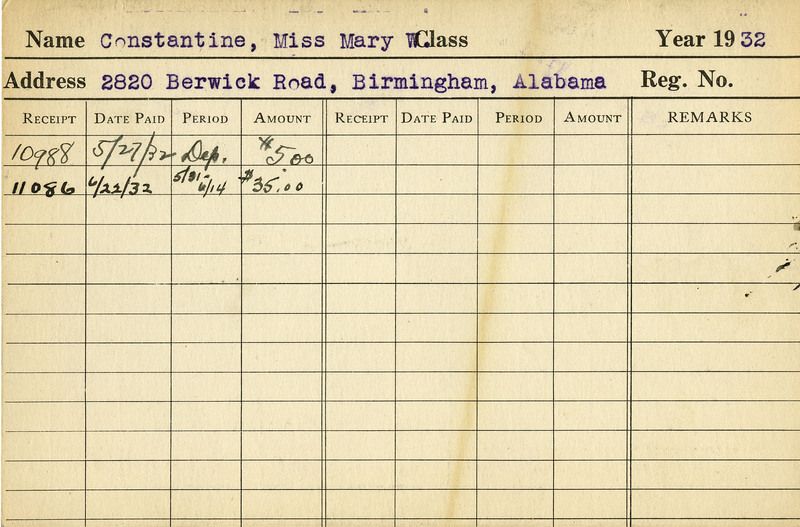 Name Constantine, Miss Mary W. Class Year 1932
Address 2820 Berwick Road, Birmingham, Alabama Reg. No.
RECEIPT DATE PAID PERIOD AMOUNT RECEIPT DATE PAID PERIOD AMOUNT REMARKS
10988 5/27/32 Dep. $5.00
11086 6/22/32 5/31-6/14 $35.00